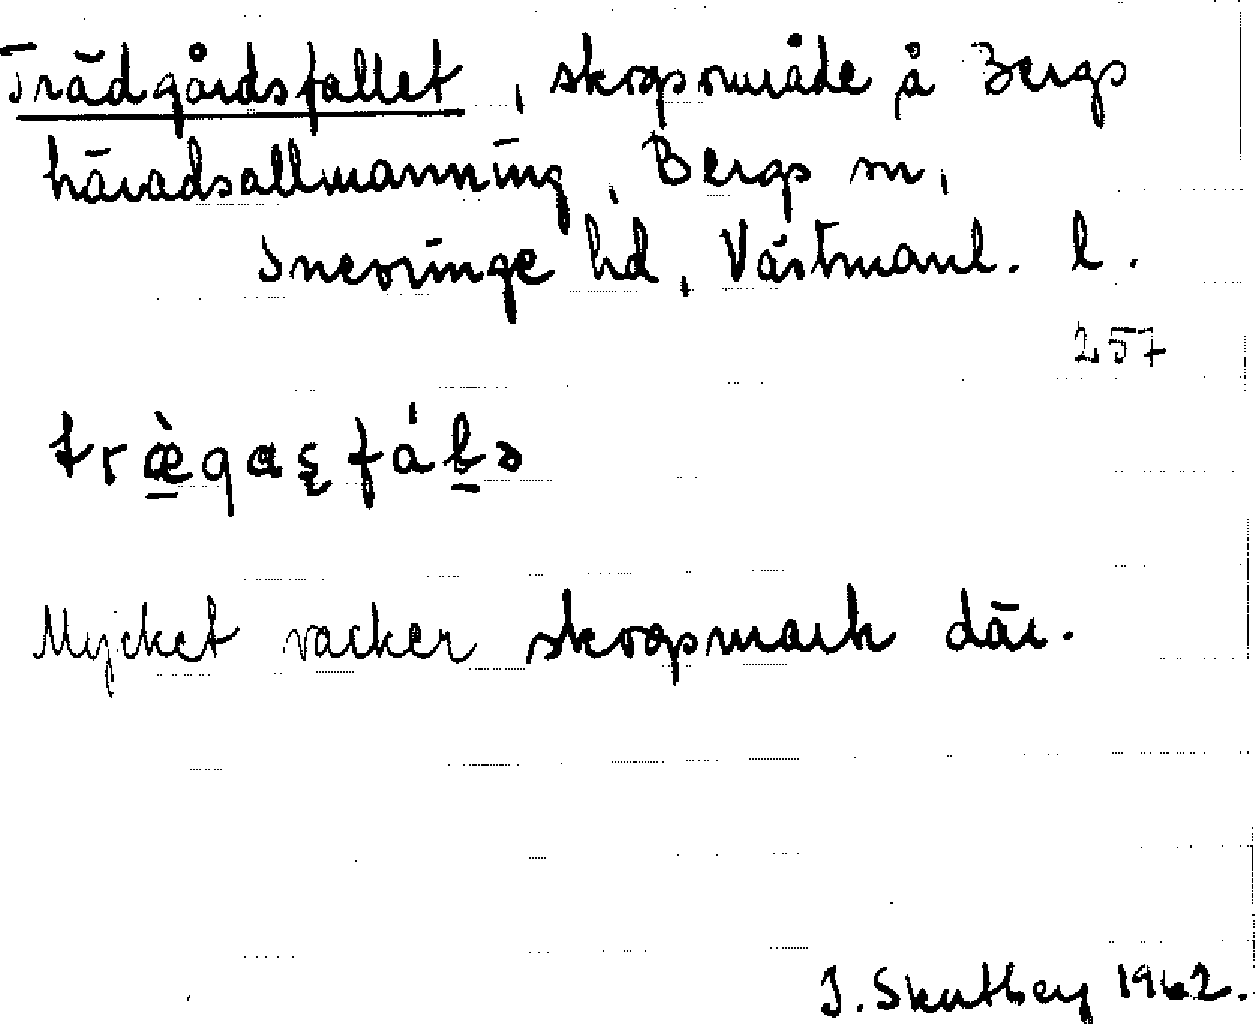 Trädgårdsfallet, skogsområde å Bergs
häradsallmänning, Bergs sn,
Snevringe hd, Västmanl. l.
257
Mycket vacker skogsmark där.
1962.